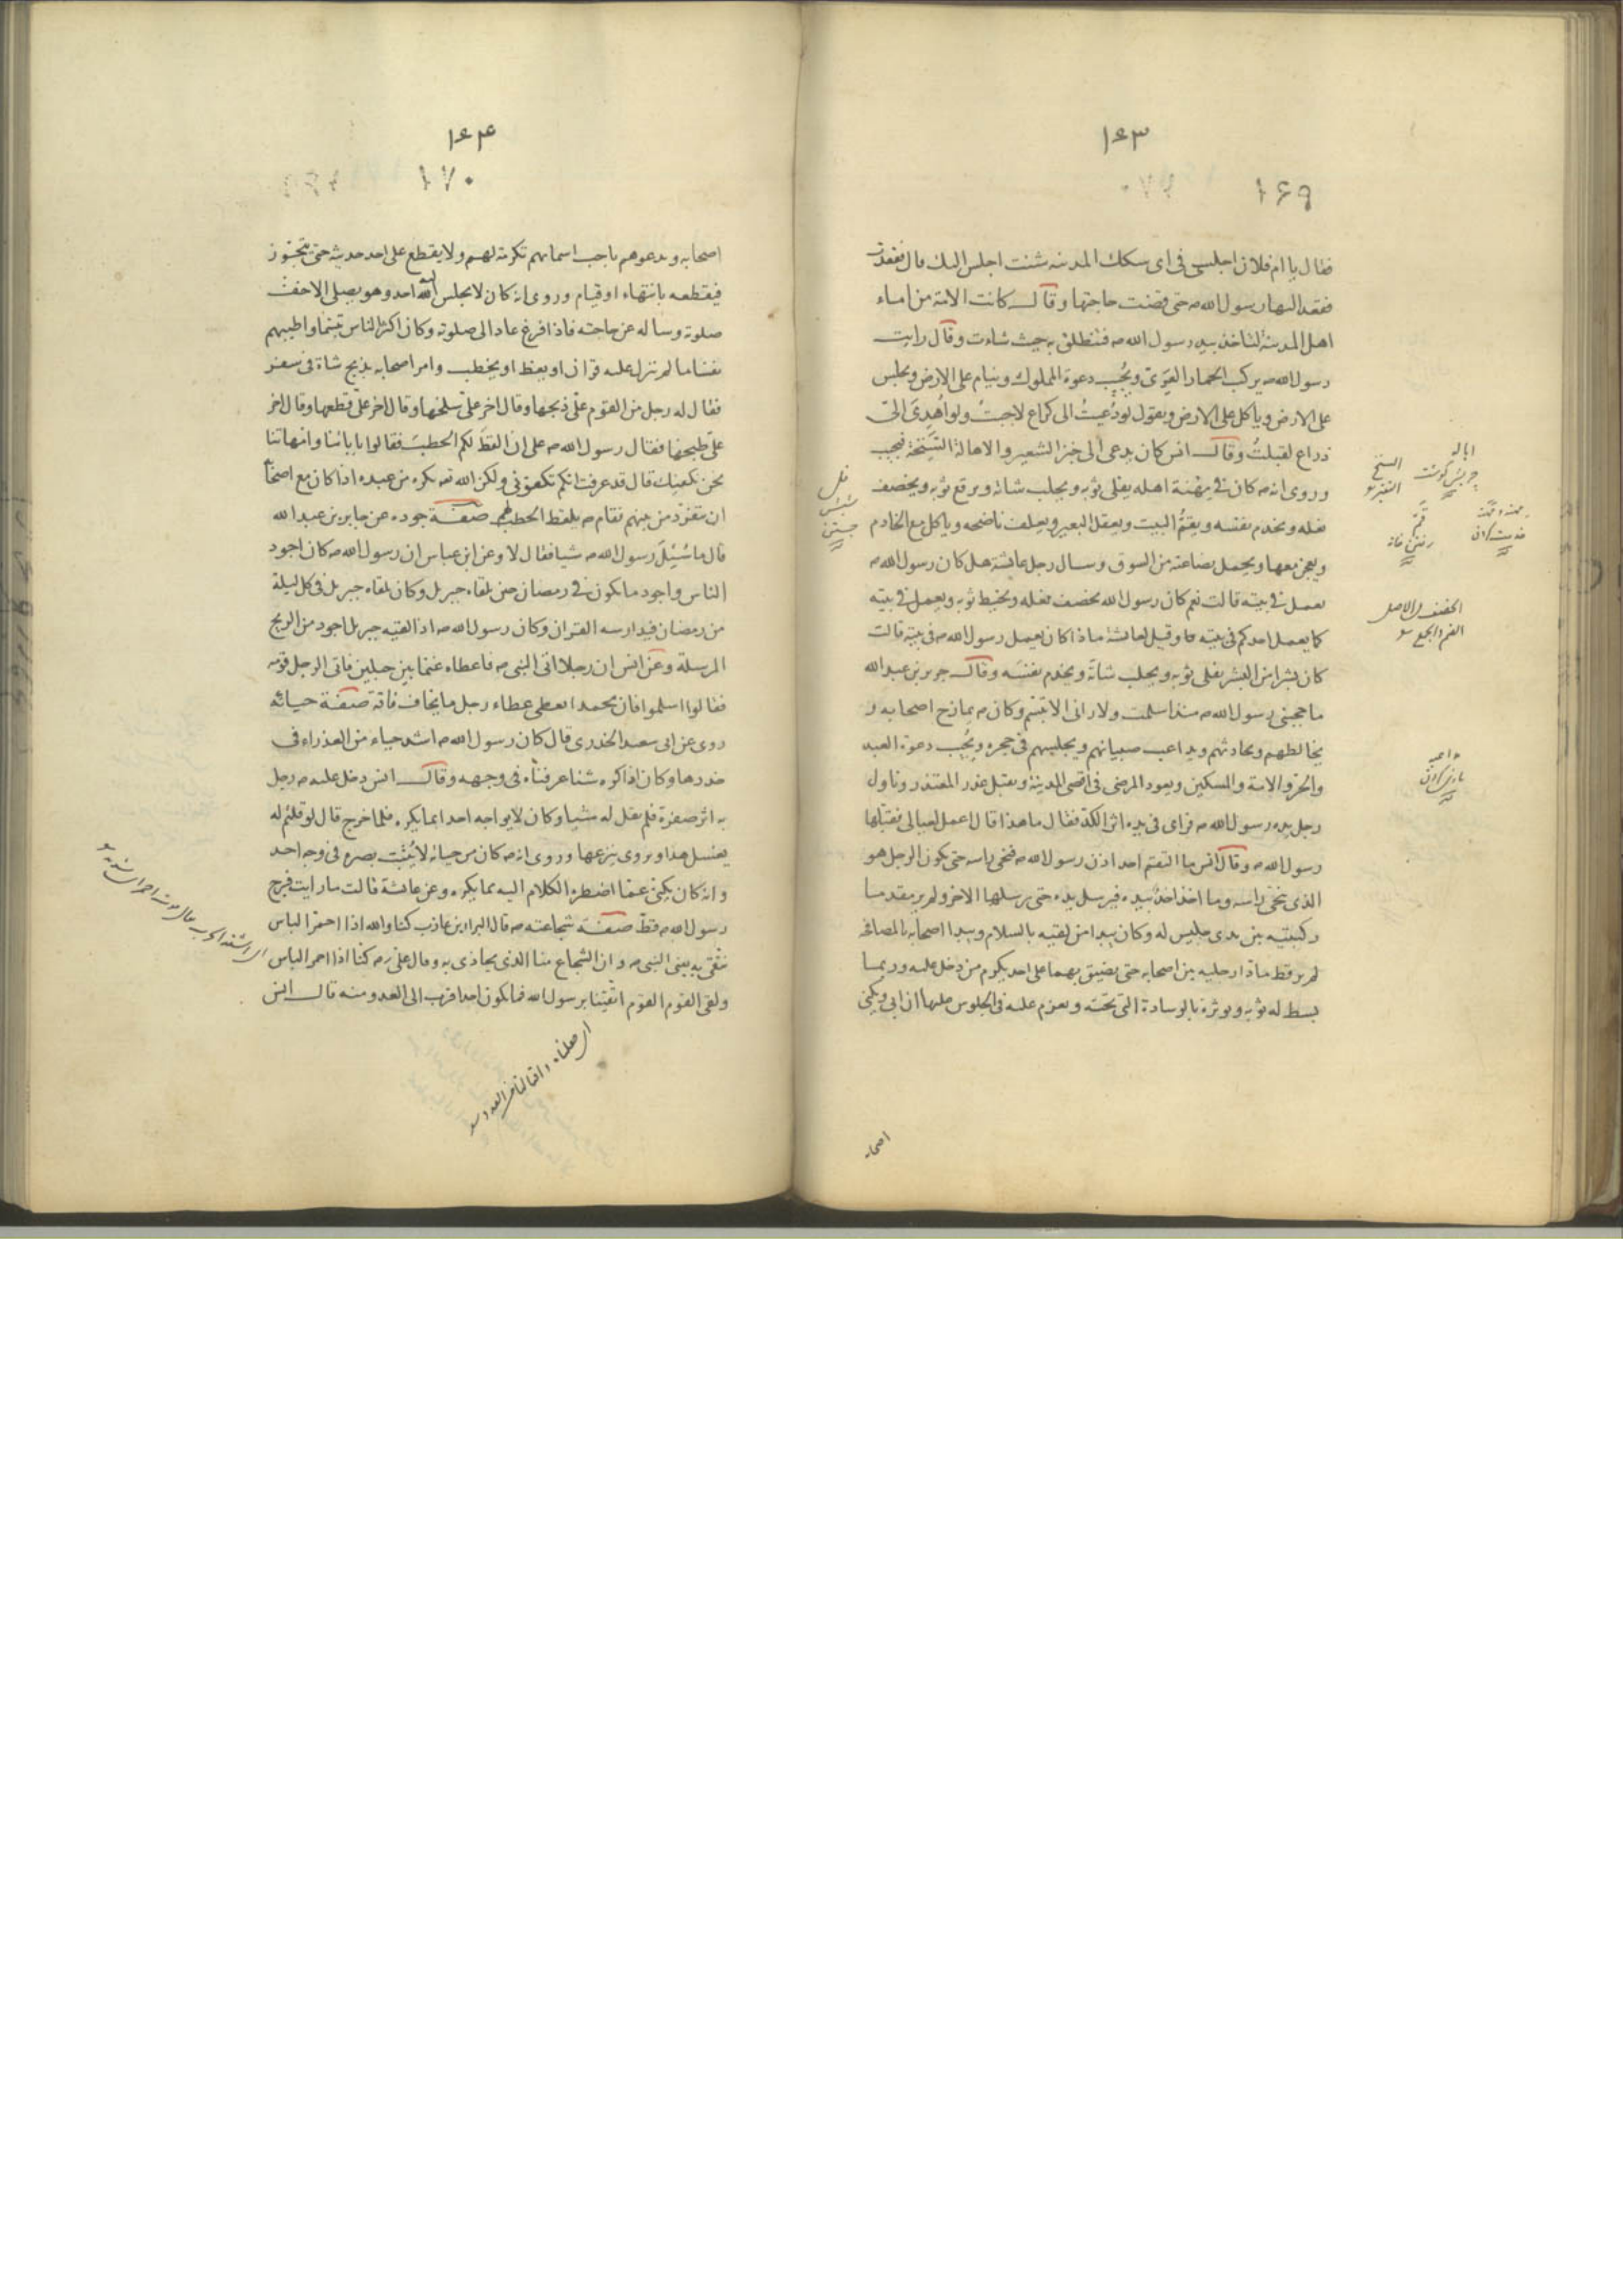 ١٦٣
١٦٩
فقال يا ام فلان اجلسى فى اى سكك المدينه شئت اجلس اليك قال فقعدت
فقعد اليها رسول الله صه حتى قضت حاجتها وقال كانت الامة من اماء
اهل المدينة لتاخذ بيد رسول الله صه فتنطلق به حيث شاءت وقال رايت
رسول الله صه يركب الحمار العَرِىّ ويُجيب دعوة المملوك وينام على الارض ويجلس
على الارض وياكل على الارض ويقول لودُعيتُ الى كراع لاجبتُ ولو اُهدِىَ الىّ
ذراع لقبلتُ وقال انس كان يدعى الى خبز الشعير والاهالة السَّنِخَة فيجيب
وروى انه صه كان فى مِهْنة اهله يفلى ثوبه ويحلب شاته ويرقع ثوبه ويخصف
نعله ويخدم نفسه ويقمُّ البيت ويعقل البعير ويعلف ناضحه وياكل مع الخادم
ويعجن معها ويحمل بضاعته من السوق وسال رجل عايشة هل كان رسول الله صه
يعمل فى بيته قالت نعم كان رسول الله يخصف نعله ويخيط ثوبه ويعمل فى بيته
كما يعمل احدكم فى بيته وقيل لعائشة ماذا كان يعمل رسول الله صه فى بيته قالت
كان بشرا من البشر يفلى ثوبه ويحلب شاته ويخدم نفسَه وقال جرير بن عبد الله
ما حجبنى رسول الله صه منذ اسلمت ولا رانى الا تبسّم وكان صه يمازح اصحابه و
يخالطهم ويحادثهم ويداعب صبيانهم ويجلسهم فى حجره ويُجيب دعوة العبد
والحرّ والامة والمسكين ويعود المرضى فى اقصى المدينة ويقبل عذر المعتذر وتناول
رجل يد رسول الله صه فراى فى يده اثر الكدّ فقال ما هذا قال اعمل لعيالى فقبّلها
رسول الله صه وقال انس ما التقم احد اذن رسول الله صه فنحى راسه حتى يكون الرجل هو
الذى ينحى راسه وما اخذ احدٌ بيده فيرسل يده حتى يرسلها الاخر ولم ير مقدما
ركبتيه بين يدى جليس له وكان يبدا من لقيه بالسلام ويبدا اصحابه بالمصافحه
لم ير قط مادّا رجليه بين اصحابه حتى يضيق بهما على احد يكرم من دخل عليه وربما
بسط له ثوبه ويوثره بالوسادة التى تحته ويعزم عليه فى الجلوس عليها ان ابى ويكنى
اصحابه
الخصف فى الاصل
الضم والجمع
١٦۴
١٧٠
اصحابه ويدعوهم باحب اسمائهم تكرمة لهم ولا يقطع على احد حديثه حتى يتجوز
فيقطعه بانتهاء او قيام وروى انه كان لا يجلس اليه احد وهو يصلى الا خفف
صلوته وساله عن حاجته فاذا فرغ عاد الى صلوته وكان اكثر الناس تبسّما واطيبهم
نفسًا ما لم ينزل عليه قران او يعظ او يخطب وامر اصحابه بذبح شاة فى سفر
فقال له رجل من القوم علىّ ذبحها وقال اخر علىّ سلخها وقال اخر علىّ قطعها وقال اخر
علىّ طبخها فقال رسول الله صه علىّ ان القطَ لكم الحطبَ فقالوا بابائنا وامهاتنا
نحن نكفيك قال قد عرفت انكم تكفونى ولكن الله يكره من عبده اذا كان مع اصحابه
ان ينفرد من بينهم فقام صه يلقط الحطب لهم صفة جوده عن جابر بن عبد الله
قال ما سُئِلَ رسول الله صه شيا فقال لا وعن ابن عباس ان رسول الله صه كان اجود
الناس واجود ما يكون فى رمضان حين يلقاه جبريل وكان يلقاه جبريل فى كل ليلة
من رمضان فيدارسه القران وكان رسول الله صه اذا لقيه جبريل اجود من الريح
المرسلة وعن انس ان رجلا اتى النبى صه فاعطاه غنما بين جبلين فاتى الرجل قومه
فقالوا اسلموا فان محمدا يعطى عطاء رجل ما يخاف فاقة صفة حيائه
روى عن ابى سعيد الخدرى قال كان رسول الله صه اشد حياء من العذراء فى
خدرها وكان اذا كره شيئا عرفناه فى وجهه وقال انس دخل عليه صه رجل
به اثر صفرة فلم يقل له شيا وكان لا يواجه احدا بما يكره فلما خرج قال لو قلتم له
يغسل هذا ويروى ينزعها وروى انه صه كان من حيائه لا يُثبت بصره فى وجه احد
وانه كان يكنى عمّا اضطره الكلام اليه مما يكره وعن عائشة قالت ما رايت فرج
رسول الله صه قطّ صفة شجاعته صه قال البراء بن عازب كنا والله اذا احمرّ الباس
نتقى به يعنى النبى صه وان الشجاع منا الذى يحاذى به وقال على رضه كنا اذا احمر الباس
ولقى القوم القوم اتقينا برسول الله فما يكون احد اقرب الى العدو منه قال انس